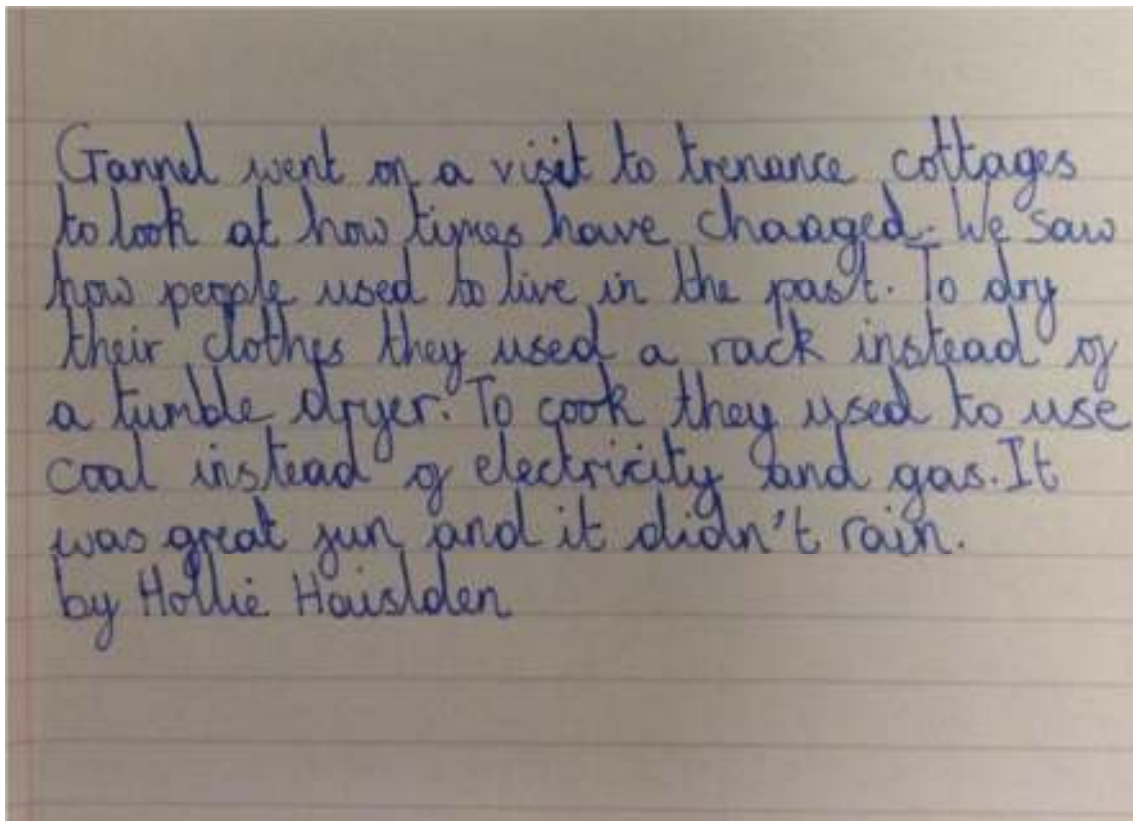 Gannel went on a visit to trenance cottages
to look at how times have changed. We saw
how people used to live in the past. To dry
their clothes they used a rack instead of
a tumble dryer. To cook they used to use
coal instead of electricity and gas. It
was great fun and it didn't rain.
by Hollie Haislden